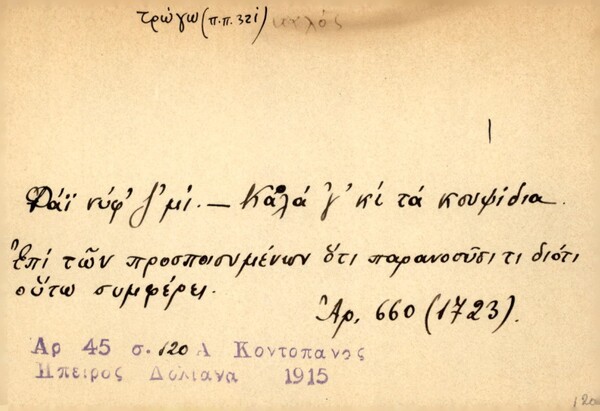 τρώγω (π.π. 32ί) καλός
Φάϊ νύφ' ζ' μί. — Καλά 'γ' κί τά κουψίδια.
Ἐπί τῶν προσποιουμένων ὅτι παρανοοῦσί τι διότι
οὕτω συμφέρει.
Ἀρ. 660 (1723).
Αρ 45 σ. 120 Α Κοντοπανος
Ηπειρος Δολιανα 1915
120